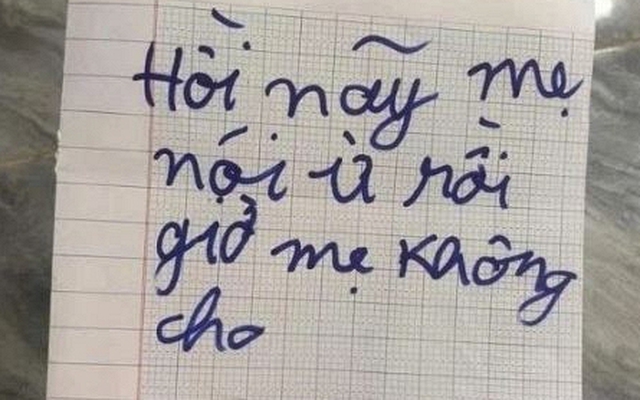 Hồi nãy mẹ
nội ừ rồi
giở mẹ không
cho